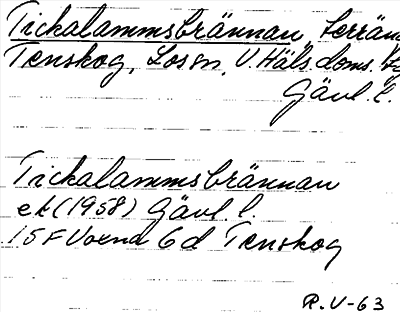 Tickalammsbrännan, terrän
Tenskog, Los sn, V. Häls. doms.
Gävl. l.
Tickalammsbrännan
ek (1958) Gävl. l.
15F Voxna 6d Tenskog
R.V-63